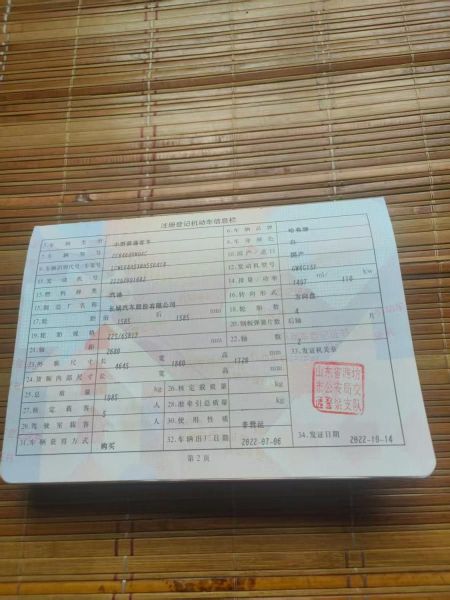 注册登记机动车信息栏
5.车辆类型 小型普通客车 6.车辆品牌 哈弗牌
7.车辆型号 8.车身颜色 白
9.车辆识别代号/车架号 10.国产/进口 国产
11.发动机号 12.发动机型号
13.燃料种类 汽油 14.排量/功率 1497 ml/ 110 kw
15.制造厂名称 长城汽车股份有限公司 16.转向形式 方向盘
17.轮距 前 1585 后 1585 mm 18.轮胎数 4
19.轮胎规格 20.钢板弹簧片数 后轴 片
21.轴距 2680 mm 22.轴数 2
23.外廓尺寸 长 4645 宽 1860 高 1720 mm 33.发证机关章
24.货厢内部尺寸 长 宽 高 mm
25.总质量 1985 kg 26.核定载质量 kg
27.核定载客 5 人 28.准牵引总质量 kg
29.驾驶室载客 人 30.使用性质 非营运
31.车辆获得方式 购买 32.车辆出厂日期 2022-07-06 34.发证日期 2022-10-14
山东省潍坊
市公安局交
支队
第2页